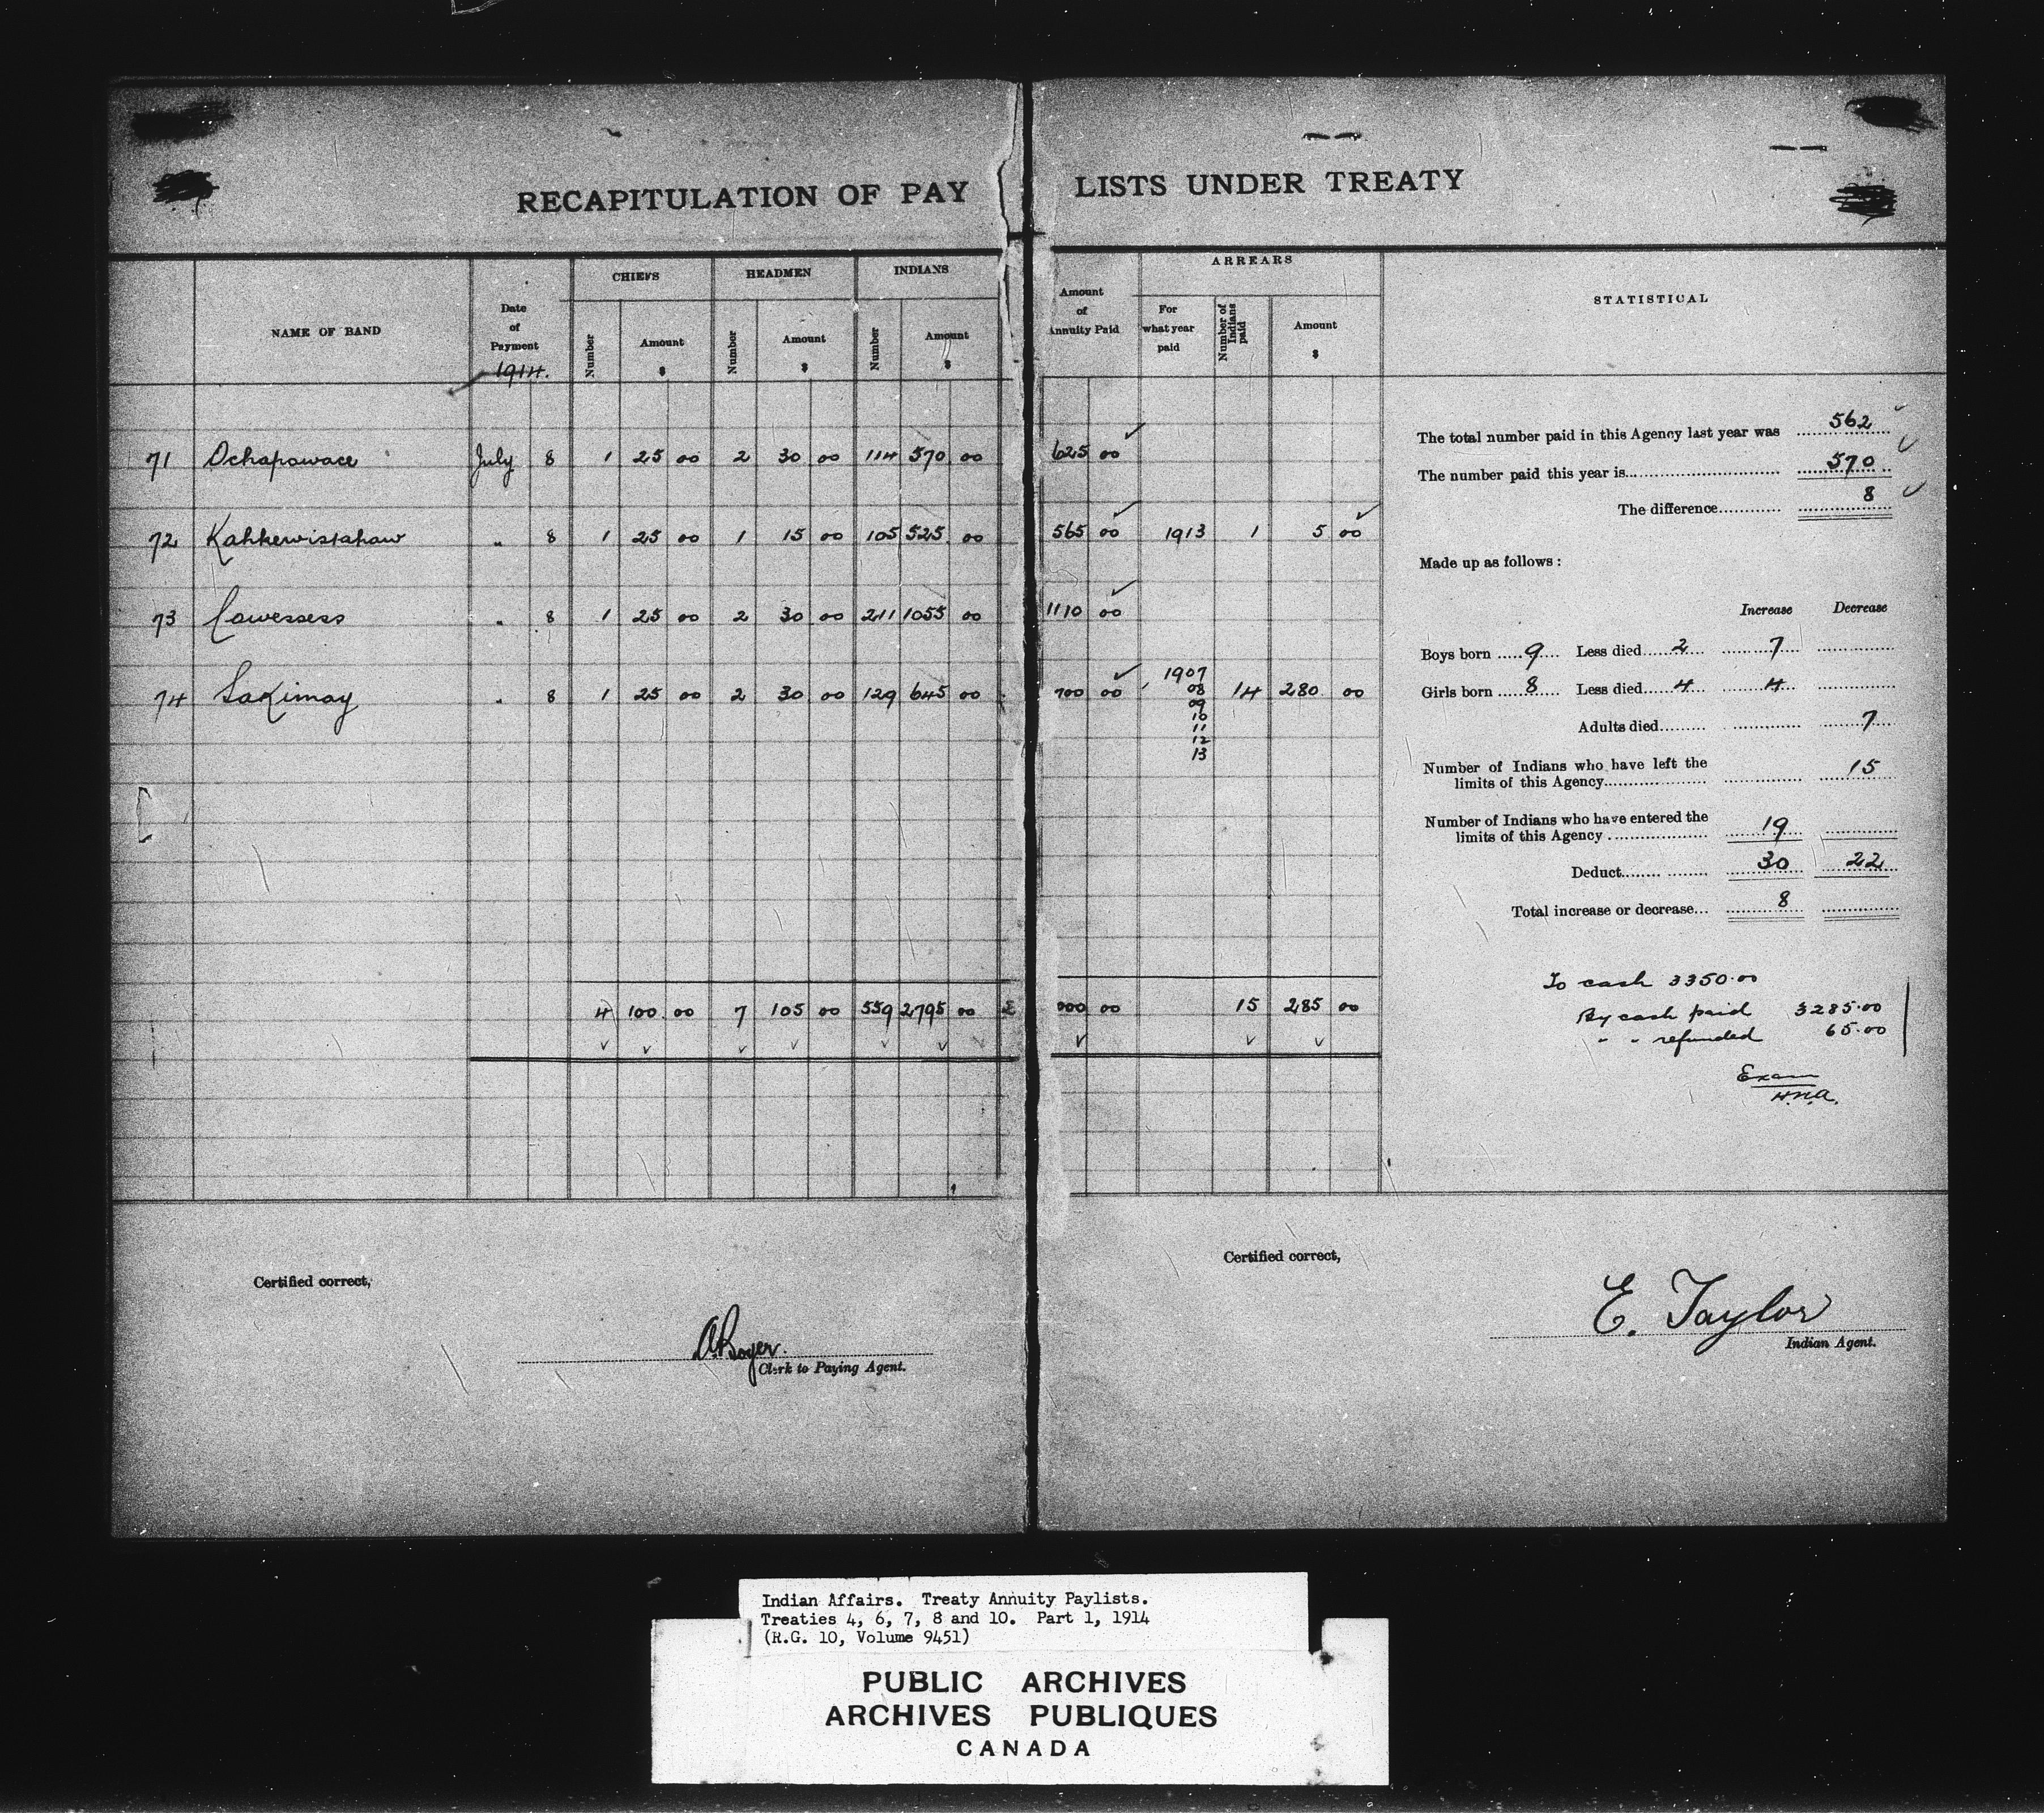 RECAPITULATION OF PAY LISTS UNDER TREATY
NAME OF BAND
Date of Payment
1914.
CHIEFS
Number
Amount
$
HEADMEN
Number
Amount
$
INDIANS
Number
Amount
$
Amount of Annuity Paid
ARREARS
For what year paid
Number of Indians paid
Amount
$
STATISTICAL
71 Ochapowace July 8 1 25 00 2 30 00 114 570 00 625 00
72 Kahkewistahaw " 8 1 25 00 1 15 00 105 525 00 565 00 1913 1 5 00
73 Cowessess " 8 1 25 00 2 30 00 211 1055 00 1110 00
74 Sakimay " 8 1 25 00 2 30 00 129 645 00 700 00 1907 14 280 00
08
09
10
11
12
13
4 100 00 7 105 00 559 2795 00 000 00 15 285 00
The total number paid in this Agency last year was 562
The number paid this year is 570
The difference 8
Made up as follows :
Increase Decrease
Boys born 9 Less died 2 7
Girls born 8 Less died 4 4
Adults died 7
Number of Indians who have left the
limits of this Agency 15
Number of Indians who have entered the
limits of this Agency 19
Deduct 30 22
Total increase or decrease 8
To cash 3350.00
By cash paid 3285.00
" " refunded 65.00
Exam
H.N.A.
Certified correct,
A. Boyer.
Clerk to Paying Agent.
Certified correct,
E. Taylor
Indian Agent.
Indian Affairs. Treaty Annuity Paylists.
Treaties 4, 6, 7, 8 and 10. Part 1, 1914
(R.G. 10, Volume 9451)
PUBLIC ARCHIVES
ARCHIVES PUBLIQUES
CANADA